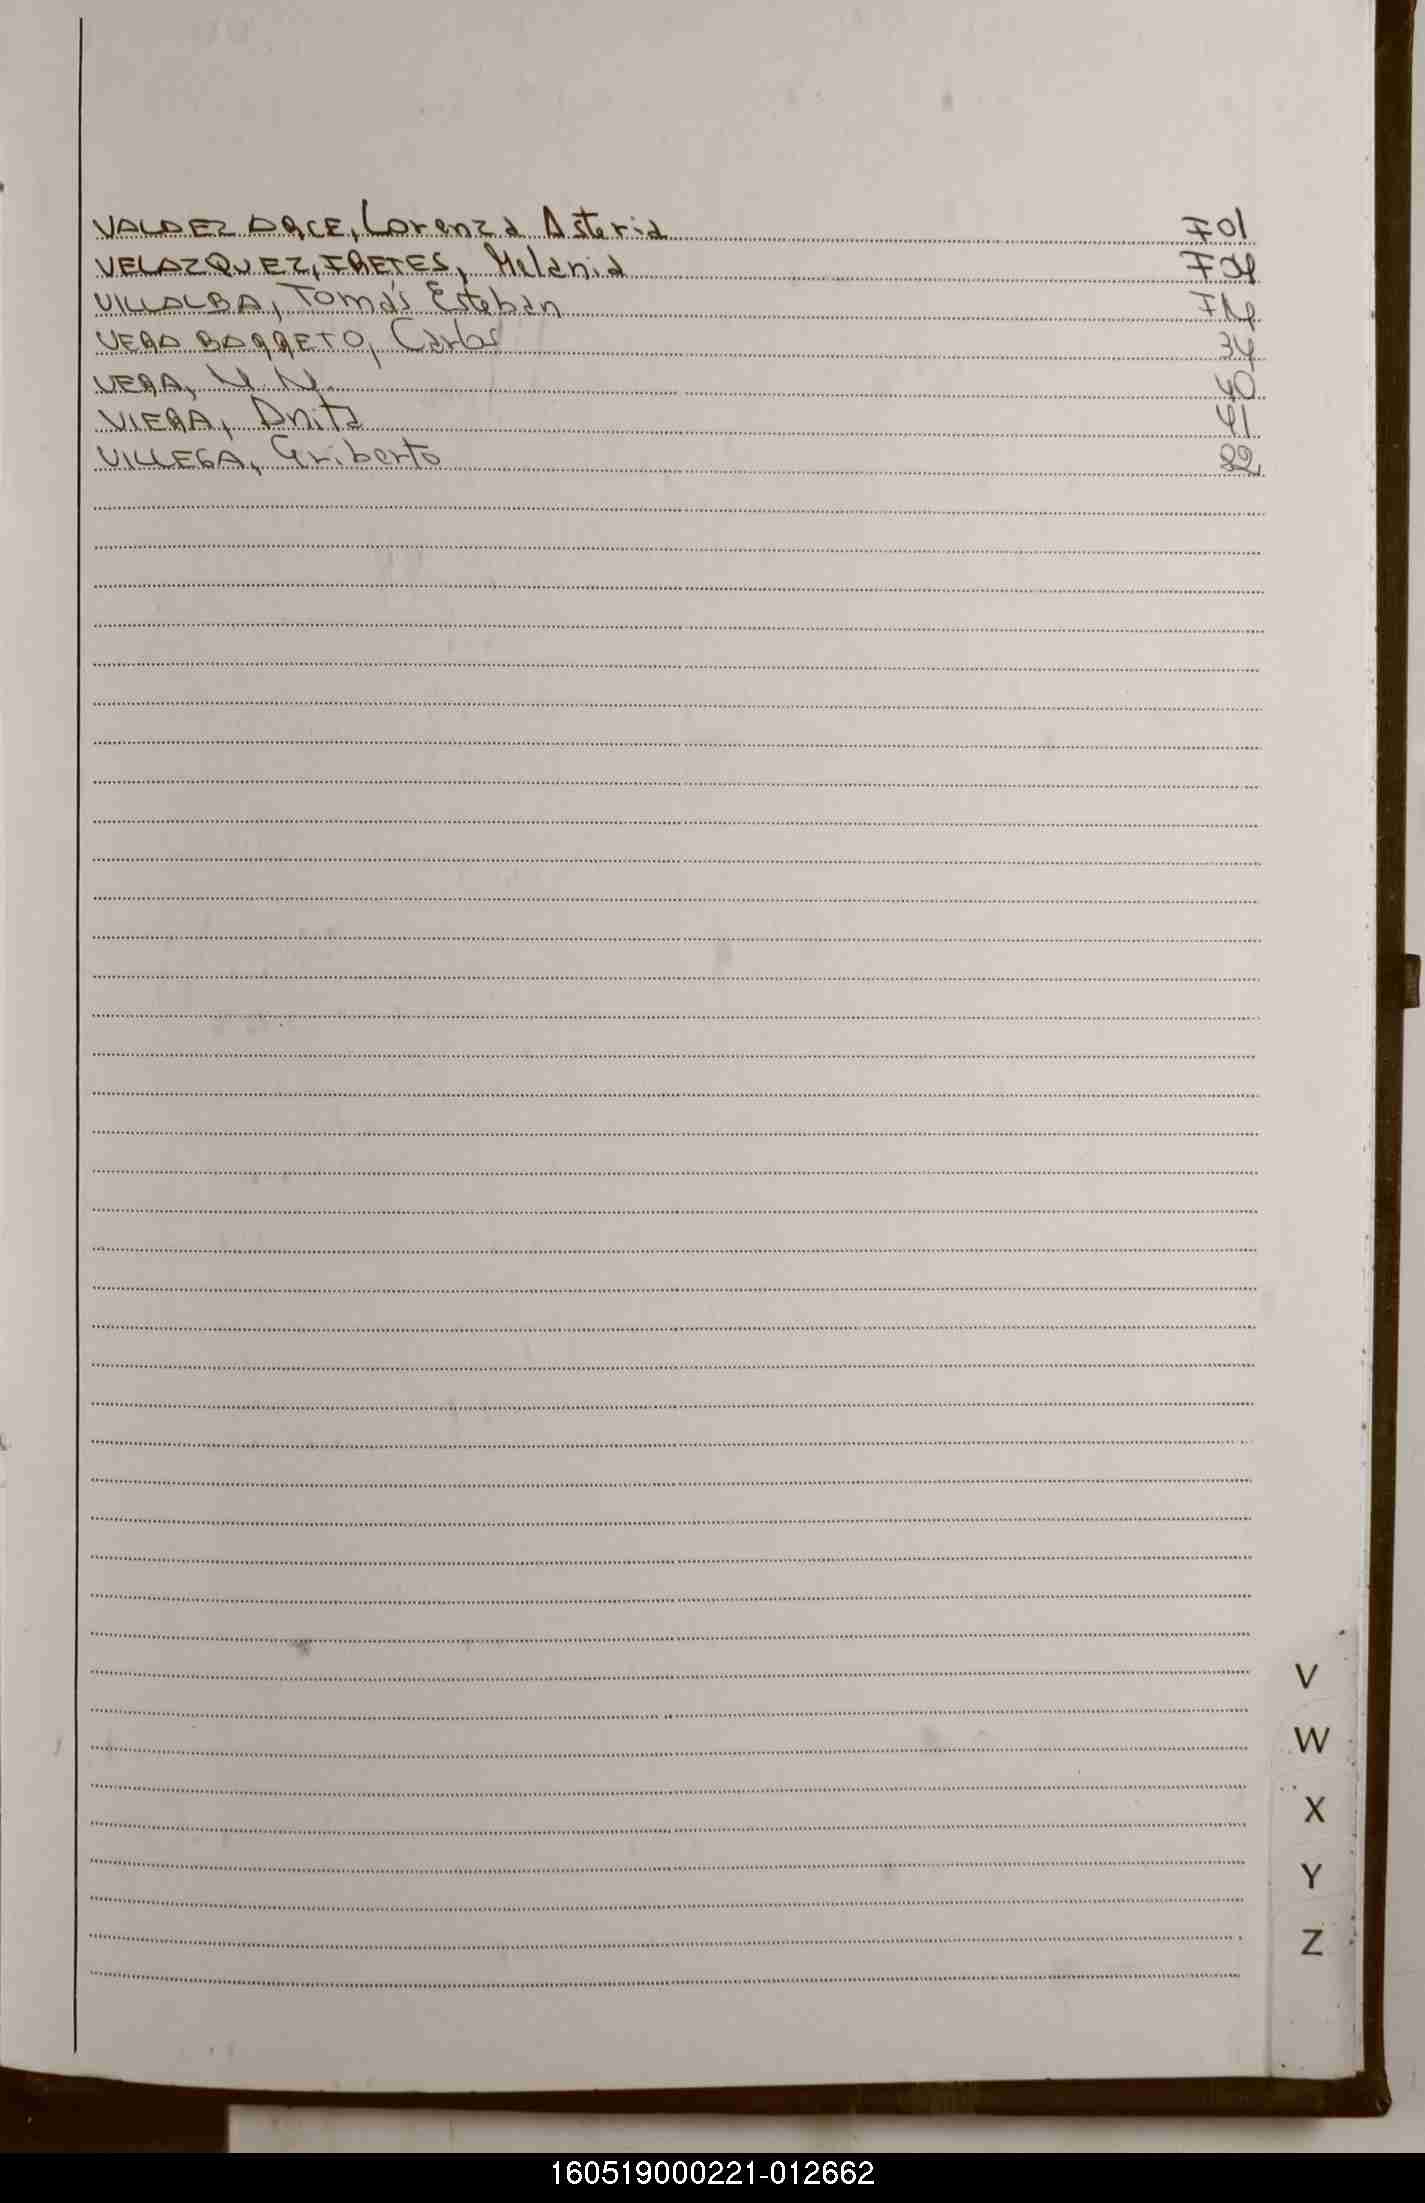 VALDEZ ARCE, Lorenza Asteria F01
VELAZQUEZ, FRETES, Melania F04
VILLALBA, Tomás Esteban F14
VERA BARRETO, Carlos 34
VERA, N N. 40
VIERA, Anita 41
VILLEGA, Griberto
V
W
X
Y
Z
160519000221-012662